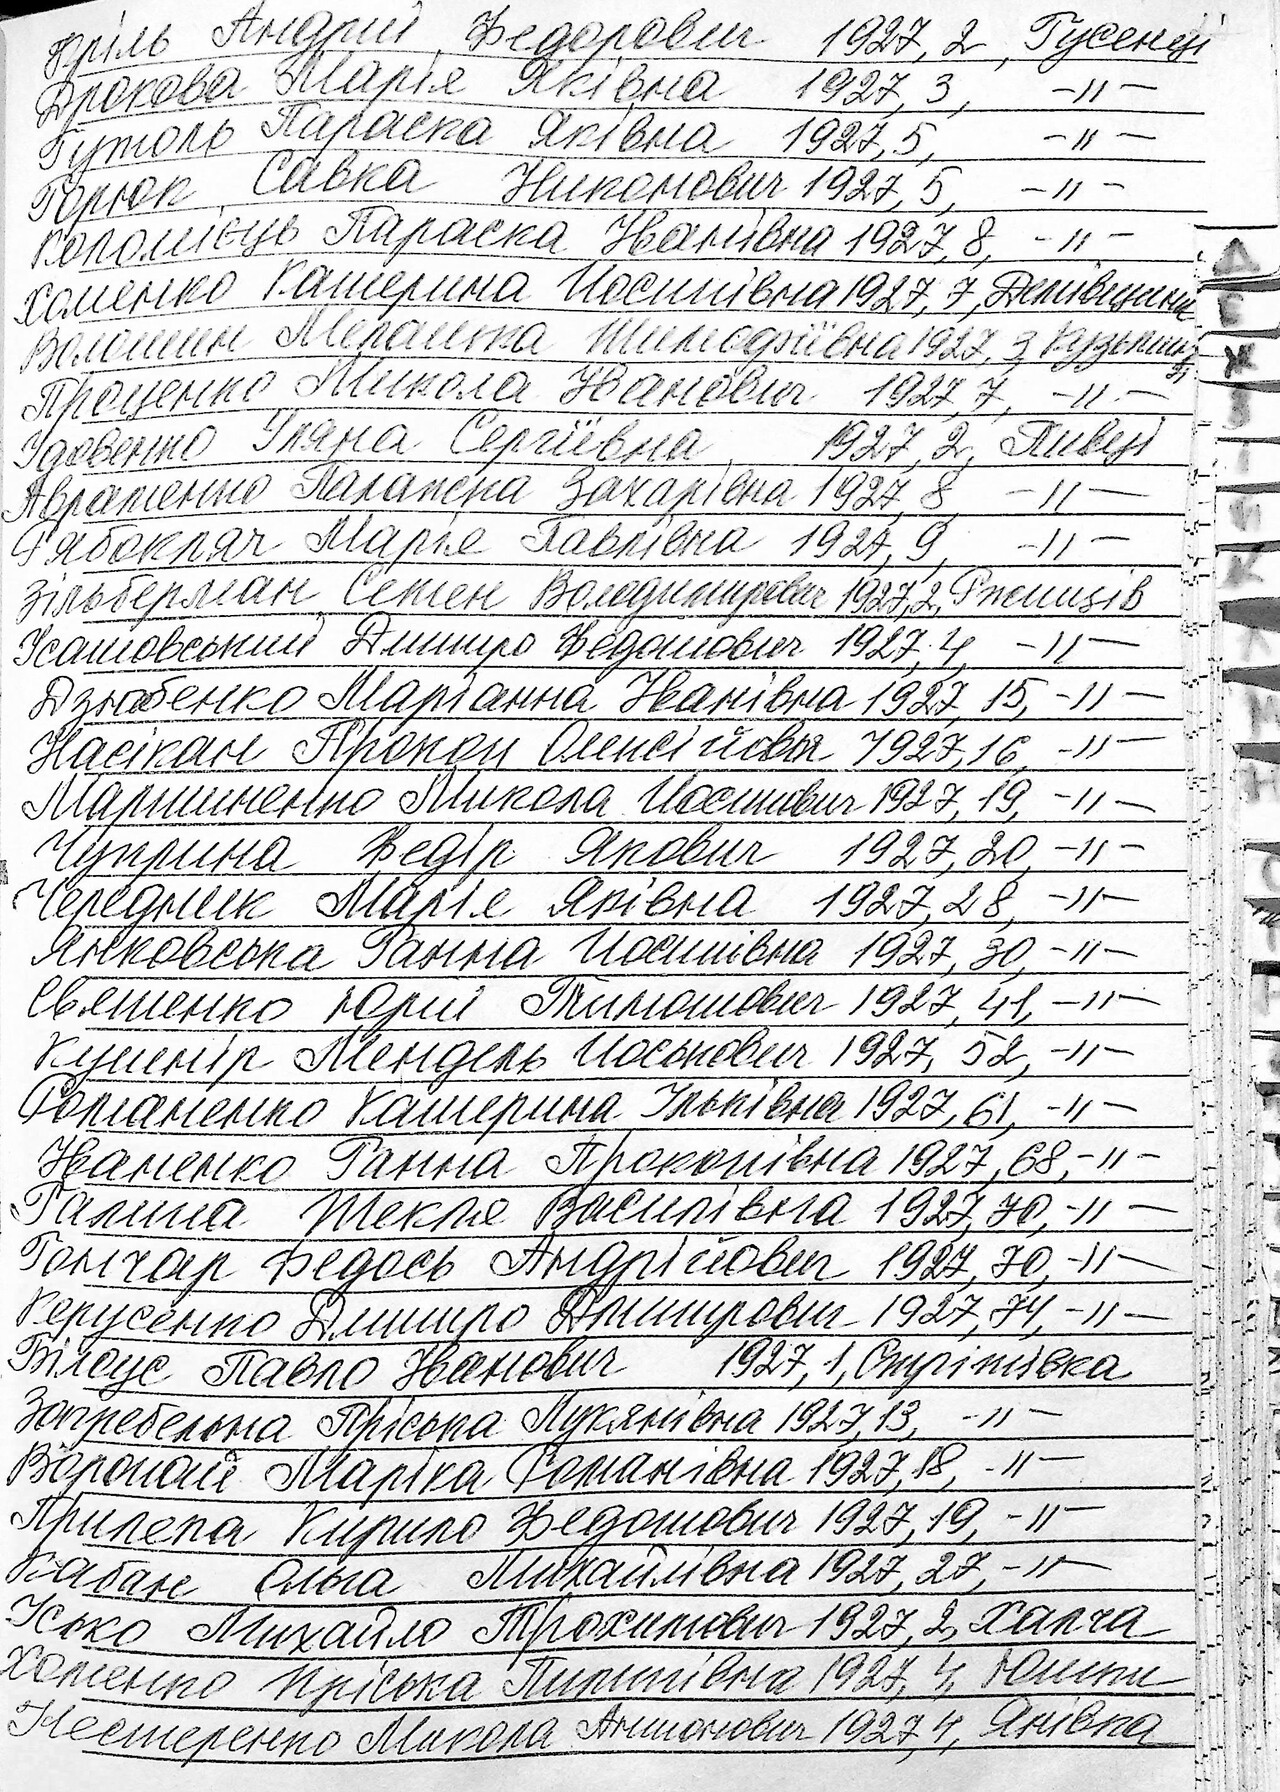 Кріль Андрій Федорович 1927, 2, Гусенці
Дрокова Марія Яківна 1927, 3, -"-
Гужоль Параска Яківна 1927, 5, -"-
Горюк Савка Никонович 1927, 5, -"-
Коломієць Параска Іванівна 1927, 8, -"-
Хоменко Катерина Йосипівна 1927, 7, Денівщина
Волошин Меланка Тимофіївна 1927, 3, Кузьминці
Проценко Микола Іванович 1927, 7, -"-
Удовенко Уляна Сергіївна 1927, 2, Пивці
Авраменко Палажка Захарівна 1927, 8, -"-
Рябокляч Марія Павлівна 1927, 9, -"-
Зільберман Семен Володимирович 1927, 2, Ржищів
Усатовський Дмитро Федотович 1927, 4, -"-
Дзюбенко Маріанна Іванівна 1927, 15, -"-
Насікан Прокоп Олексійович 1927, 16, -"-
Мартиненко Микола Йосипович 1927, 19, -"-
Чуприна Федір Якович 1927, 20, -"-
Чередник Марія Яківна 1927, 28, -"-
Янковська Ганна Йосипівна 1927, 30, -"-
Святенко Юрій Тимошович 1927, 41, -"-
Кушнір Мендель Йоськович 1927, 52, -"-
Романенко Катерина Ільківна 1927, 61, -"-
Іваненко Ганна Прокопівна 1927, 68, -"-
Галина Текля Василівна 1927, 70, -"-
Гончар Федось Андрійович 1927, 70, -"-
Керусенко Дмитро Дмитрович 1927, 74, -"-
Білоус Павло Іванович 1927, 1, Стрітівка
Загребельна Пріська Лукянівна 1927, 13, -"-
Воропай Маріка Романівна 1927, 18, -"-
Прилепа Кирило Федотович 1927, 19, -"-
Кабан Ольга Михайлівна 1927, 27, -"-
Усько Михайло Трохимович 1927, 2, Халча
Хоменко Пріська Пилипівна 1927, 4, Юшки
Нестеренко Микола Антонович 1927, 4, Янівка